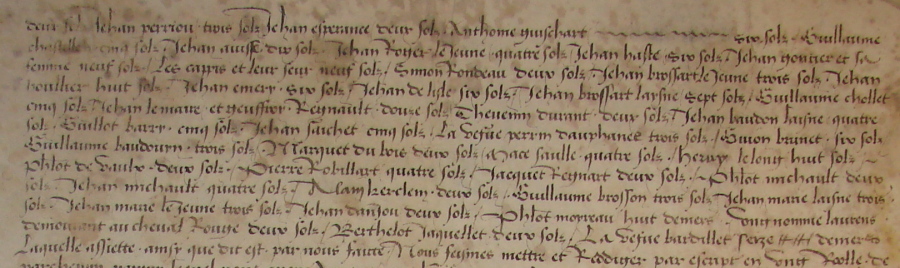 deux solz Jehan perriou trois solz Jehan esperance deux solz Anthoine guischart six solz Guillaume
cinq solz Jehan dix solz Jehan Royer le Jeune quatre solz Jehan haste six solz Jehan goutier et sa
femme neuf solz Les cappis et leur seur neuf solz Simon Rondeau deux solz Jehan brossart le Jeune trois solz Jehan
houllier huit solz Jehan emery six solz Jehan de lisle six solz Jehan brossart laisne sept solz Guillaume chollet
cinq solz Jehan lemaire et geuffroy Regnault douze solz Thevenin durant deux solz Jehan baudon laisne quatre
solz Guillot barry cinq solz Jehan cinq solz La vefue perrin dauphanee trois solz Guion brunet six solz
Guillaume baudouyn trois solz Marquet du bois deux solz Mace saulle quatre solz hervy lelong huit solz
Phlot de vaulx deux solz Pierre Robillart quatre solz Jacquet Regnart deux solz Phlot michault deux
solz Jehan michault quatre solz Alain deux solz Guillaume brosson trois solz Jehan marie laisne trois
solz Jehan marie le Jeune trois solz Jehan danjou deux solz Phlot moyreau huit deniers Ung nomme laurens
demourant au cheval Rouge deux solz Berthelot Jaquellet deux solz La vefue bardillet seize deniers
Laquelle assiette ainsy que dit est par nous faicte Nous feismes mettre et Rediger par escript en Rolle de
parchemin